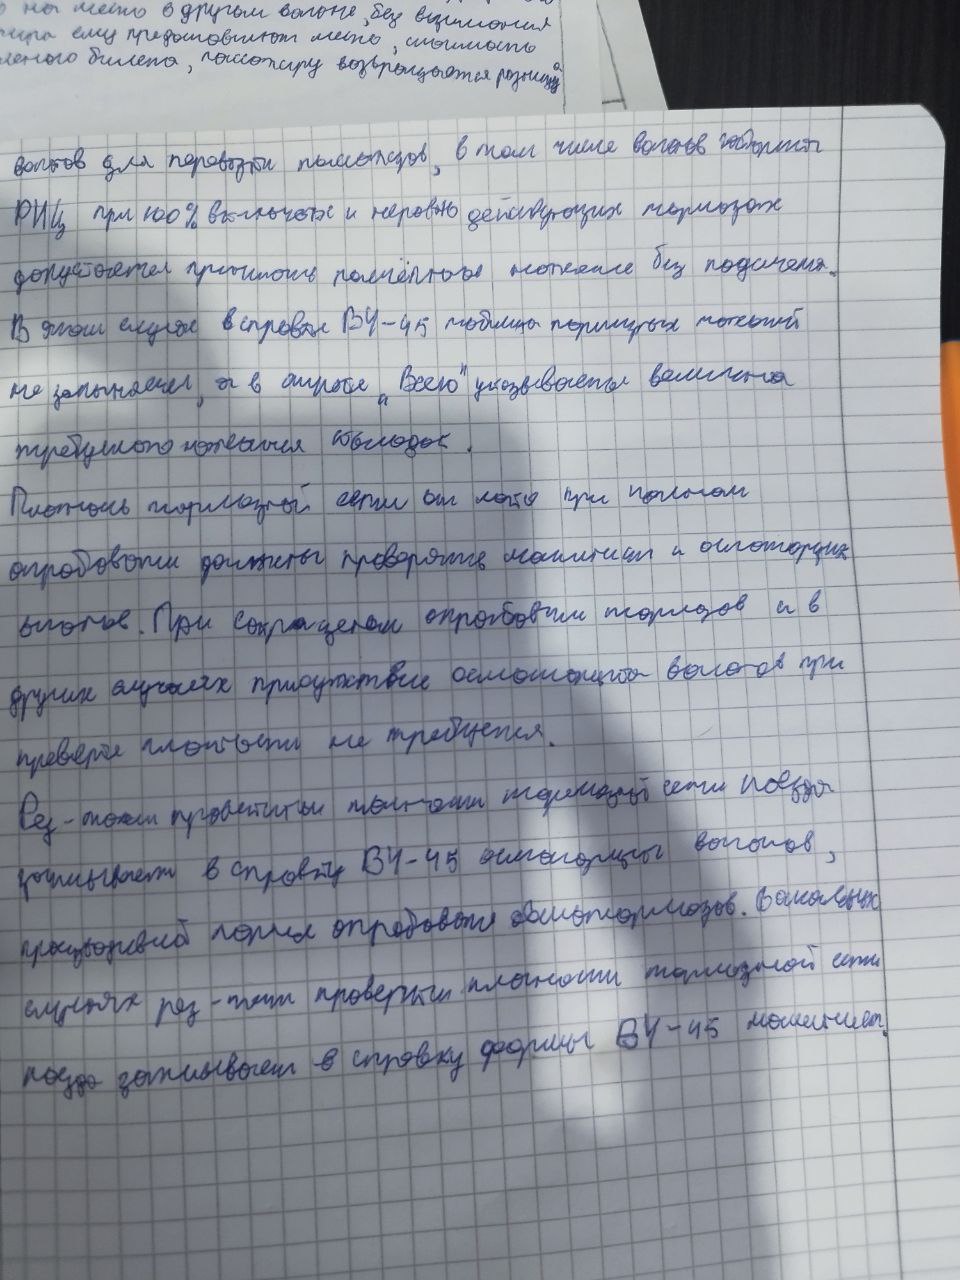 на место в другом вагоне, без взимания
ему предоставляют место, стоимость
билета, пассажиру возвращается разница
вагонов для перевозки пассажиров, в том числе вагонов габарита
РИЦ при 100% включенных и исправно действующих тормозах
допускается принимать расчётное нажатие без подсчета.
В этом случае в справке ВУ-45 таблица тормозных нажатий
не заполняется, а в строке „Всего" указывается величина
требуемого нажатия колодок.
Плотность тормозной сети от локо при полном
опробовании должны проверять машинист и осмотрщик
вагонов. При сокращенном опробовании тормозов и в
других случаях присутствие осмотрщика вагонов при
проверке плотности не требуется.
Рез-таты проверки плотности тормозной сети поезда
записывает в справку ВУ-45 осмотрщик вагонов,
производивший полное опробование автотормозов. В остальных
случаях рез-таты проверки плотности тормозной сети
поезда записывает в справку формы ВУ-45 машинист.